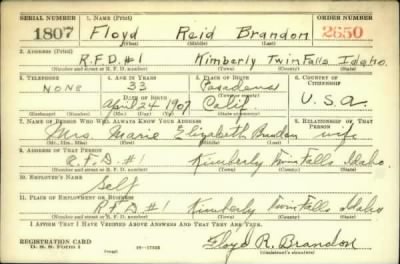 SERIAL NUMBER 1. NAME (Print) ORDER NUMBER
1807 Floyd Reid Brandon 2650
(First) (Middle) (Last)
2. ADDRESS (Print)
R.F.D. #1 Kimberly Twin Falls Idaho.
(Number and street or R. F. D. number) (Town) (County) (State)
3. TELEPHONE 4. AGE IN YEARS 5. PLACE OF BIRTH 6. COUNTRY OF CITIZENSHIP
NONE 33 Pasadena U.S.A.
DATE OF BIRTH (Town or county)
April 24 1907 Calif.
(Exchange) (Number) (Mo.) (Day) (Yr.) (State or country)
7. NAME OF PERSON WHO WILL ALWAYS KNOW YOUR ADDRESS 8. RELATIONSHIP OF THAT PERSON
Mrs. Marie Elizabeth Brandon wife
(Mr., Mrs., Miss) (First) (Middle) (Last)
9. ADDRESS OF THAT PERSON
R.F.D. #1 Kimberly Twin Falls Idaho
(Number and street or R. F. D. number) (Town) (County) (State)
10. EMPLOYER'S NAME
Self
11. PLACE OF EMPLOYMENT OR BUSINESS
R.F.D. #1 Kimberly Twin Falls Idaho
(Number and street or R. F. D. number) (Town) (County) (State)
I AFFIRM THAT I HAVE VERIFIED ABOVE ANSWERS AND THAT THEY ARE TRUE.
REGISTRATION CARD
D. S. S. FORM 1
Floyd R. Brandon
(Registrant's signature)